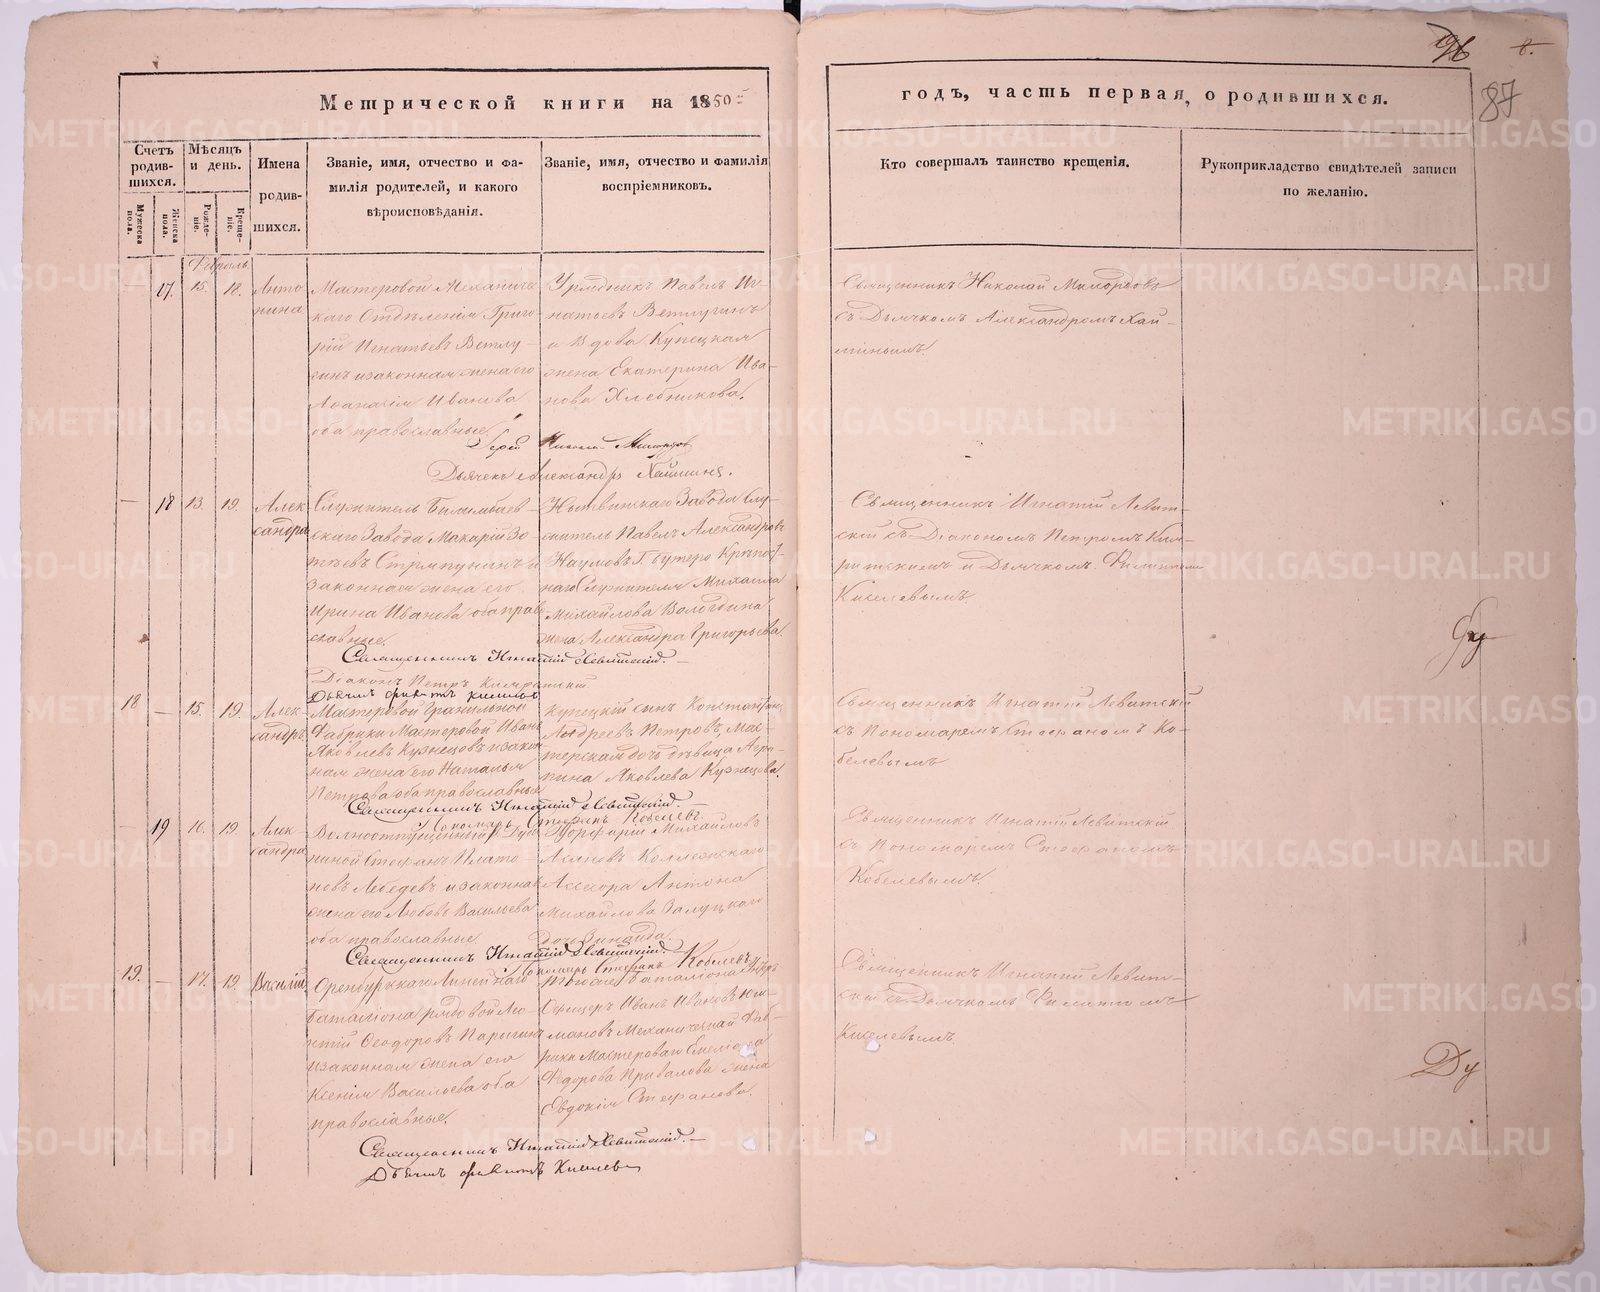 Метрической книги на 1850
годъ, часть первая, о родившихся.
96
87
Счетъ родив-шихся.
Мѣсяцъ и день.
Имена родив-шихся.
Званіе, имя, отчество и фа-
милія родителей, и какого
вѣроисповѣданія.
Званіе, имя, отчество и фамилія
воспріемниковъ.
Кто совершалъ таинство крещенія.
Рукоприкладство свидѣтелей записи
по желанію.
Мужеска пола.
Женска пола.
Рожде-ніе.
Креще-ніе.
Февраль
17. 15. 18.
Анто-
нина
Мастеровой Механиче
скаго Отдѣленія Григо-
рій Игнатьевъ Ветлу-
гинъ и законная жена его
Аѳанасія Иванова
оба православные.
Урядникъ Павелъ Иг-
натьевъ Ветлугинъ
и Вдова Купецкая
жена Екатерина Ива-
нова Хлебникова.
Священникъ Николай
съ Дьячкомъ Александромъ Хай-
минымъ.
Іерей Николай
Дьячекъ Александръ Хайминъ.
— 18 13. 19.
Алек
сандра
Служитель Билимбаев-
скаго Завода Макарій Зо-
тѣевъ Стряпунинъ и
Законная жена его
Ирина Иванова оба право-
славные.
Нытвинскаго Завода Слу-
житель Павелъ Александровъ
Наумовъ Г. Бутеро Крѣпост-
наго Служителя Михаила
Михайлова Вологдина
жена Александра Григорьева.
Священникъ Игнатій Левит-
скій съ Діакономъ Петромъ Ким-
ритскимъ и Дьячкомъ Филиппомъ
Киселевымъ
Священникъ Игнатій Левитскій.
Діаконъ Петръ
18 — 15. 19.
Алек-
сандръ
Мастеровой Гранильной
Фабрики Мастеровой Иванъ
Яковлевъ Кузнецовъ и закон
ная жена его Наталья
Петрова оба православные
Купецкій сынъ Константинъ
Андреевъ Петровъ, Мас-
терская дочь дѣвица Агри-
пина Яковлева Кузнецова.
Священникъ Игнатій Левитскій
съ Пономаремъ Стефаномъ Ко-
белевымъ
Священникъ Игнатій Левитскій.
Пономарь Стефанъ Кобелевъ.
— 19 16. 19.
Алек-
сандра
Вольноотпущенный
Стефанъ Плато-
новъ Лебедевъ и законная
жена его Любовь Васильева
оба православные
Порфирій Михайловъ
Коллежскаго
Асесора Антона
Михайлова Залуцкаго
дочь Зинаида
Священникъ Игнатій Левитскій
съ Пономаремъ Стефаномъ
Кобелевымъ.
Священникъ Игнатій Левитскій.
Пономарь Стефанъ Кобелевъ
19. — 17. 19.
Василій
Оренбургкаго Линейнаго
Баталіона рядовой Ле-
нтій Ѳеодоровъ
и законная жена его
Ксенія Васильева оба
православные.
Тогоже Баталіона Унтеръ
Офицеръ Иванъ Ивановъ
мановъ Механической Фаб-
рики Мастероваго
Федорова Привалова жена
Евдокія Стефанова.
Священникъ Игнатій Левит-
скій съ Дьячкомъ Филиппомъ
Киселевымъ.
Священникъ Игнатій Левитскій. —
METRIKI.GASO-URAL.RU